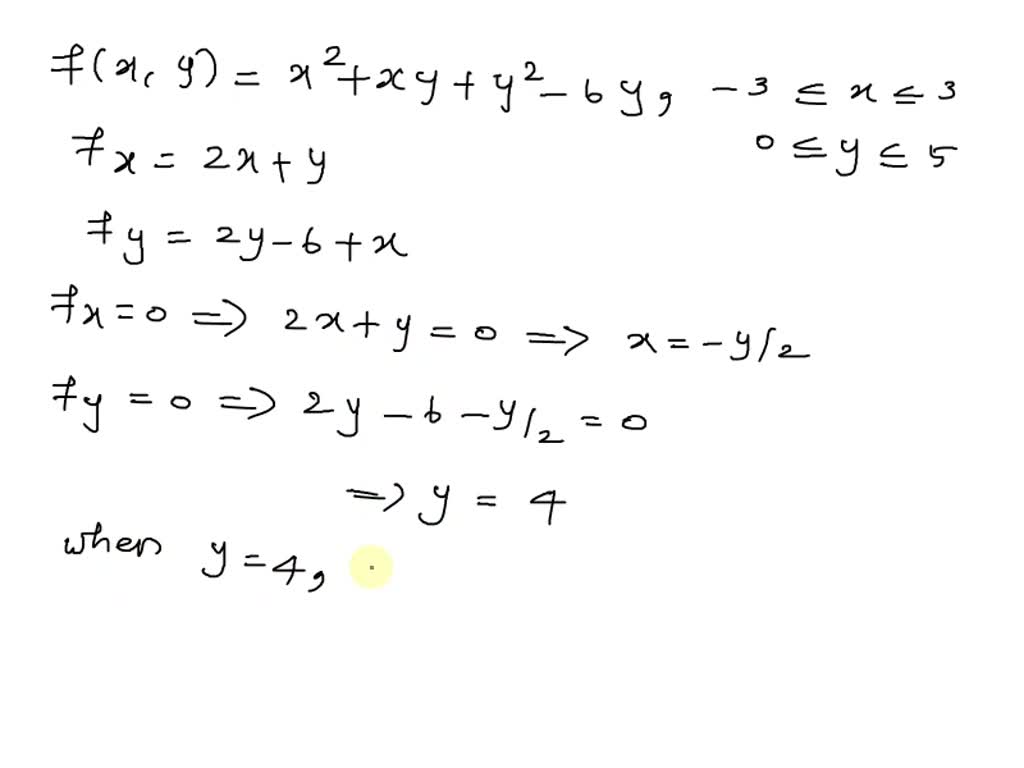 f(x, y) = x² + xy + y² - 6y, -3 ≤ x ≤ 3
0 ≤ y ≤ 5
fx = 2x + y
fy = 2y - 6 + x
fx = 0 ⇒ 2x + y = 0 ⇒ x = -y/2
fy = 0 ⇒ 2y - 6 - y/2 = 0
⇒ y = 4
when y = 4,